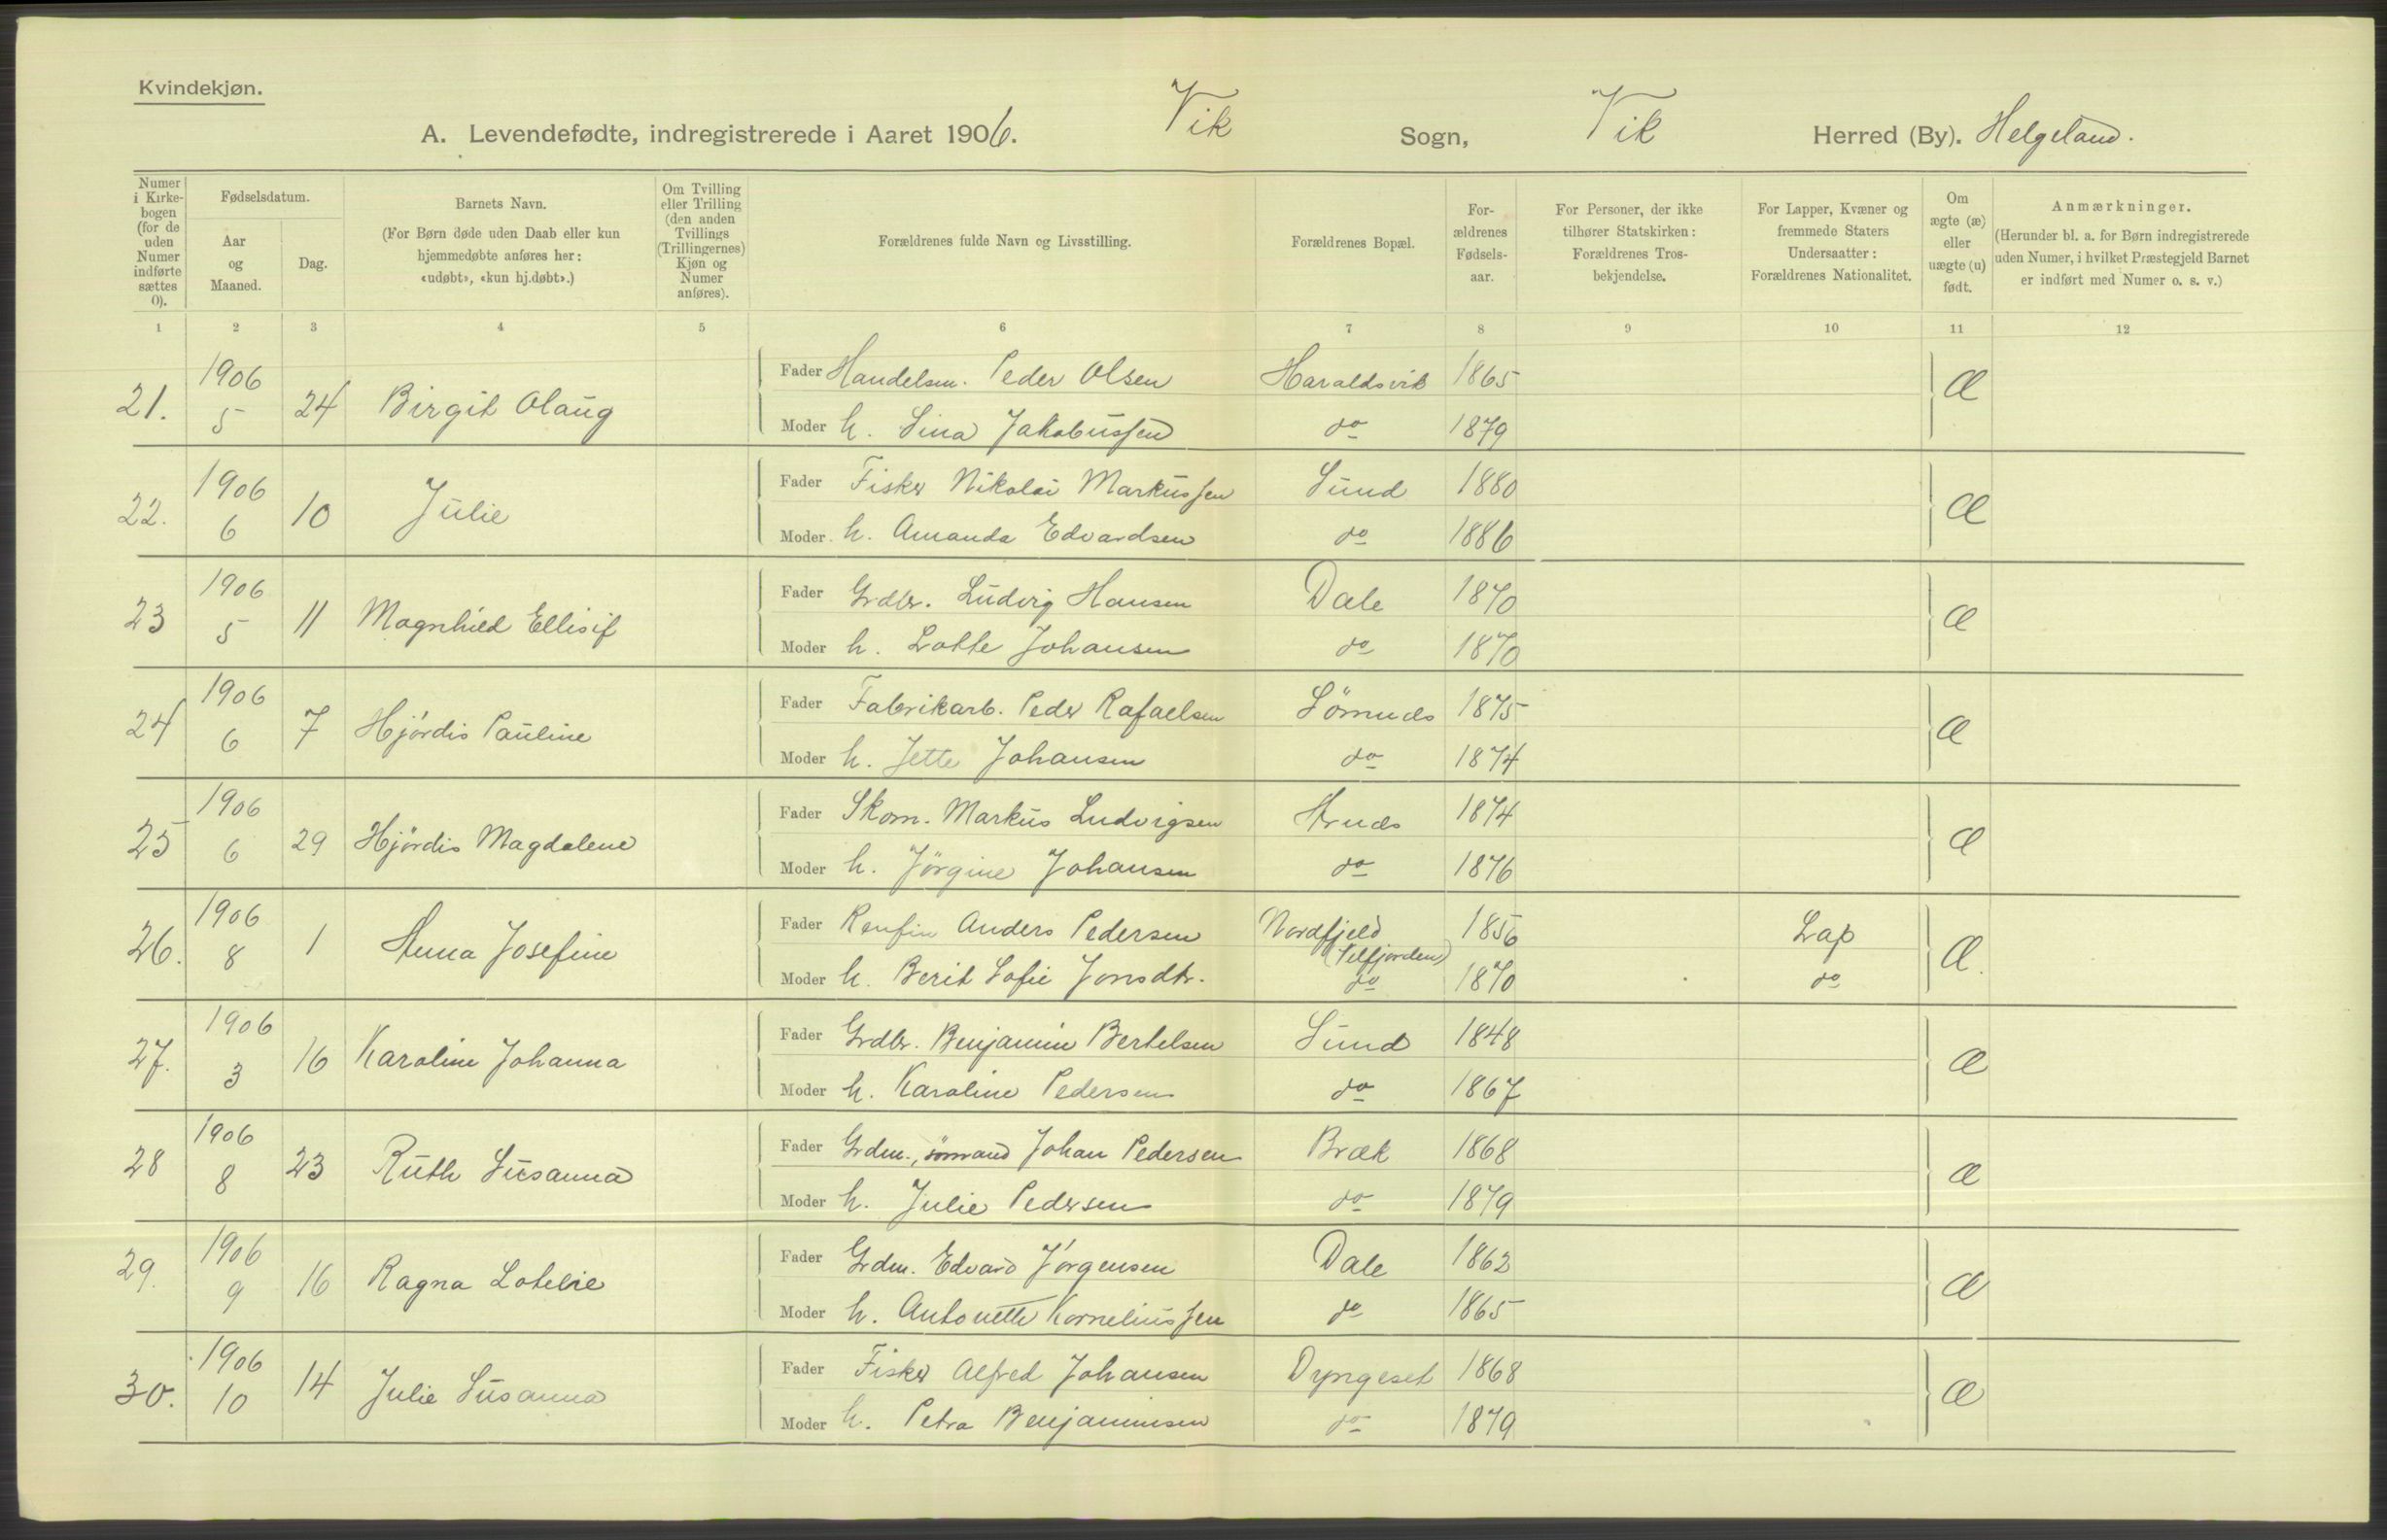 Kvindekjøn.
A. Levendefødte, indregistrerede i Aaret 1906. Vik Sogn, Vik Herred (By). Helgeland.
Numer i Kirkebogen (for de uden Numer indførte sættes 0).
Fødselsdatum.
Aar og Maaned.
Dag.
Barnets Navn.
(For Børn døde uden Daab eller kun hjemmedøbte anføres her: «udøbt», «kun hj.døbt».)
Om Tvilling eller Trilling (den anden Tvillings (Trillingernes) Kjøn og Numer anføres).
Forældrenes fulde Navn og Livsstilling.
Forældrenes Bopæl.
For-ældrenes Fødsels-aar.
For Personer, der ikke tilhører Statskirken: Forældrenes Tros-bekjendelse.
For Lapper, Kvæner og fremmede Staters Undersaatter: Forældrenes Nationalitet.
Om ægte (æ) eller uægte (u) født.
Anmærkninger.
(Herunder bl. a. for Børn indregistrerede uden Numer, i hvilket Præstegjeld Barnet er indført med Numer o. s. v.)
1 2 3 4 5 6 7 8 9 10 11 12
21. 1906 5 24 Birgit Olaug Æ
Fader Handelsm. Peder Olsen Haraldsvik 1865
Moder h. Sina Jakobussen do 1879
22. 1906 6 10 Julie Æ
Fader Fisker Nikolai Markussen Sund 1880
Moder h. Amanda Edvardsen do 1886
23 1906 5 11 Magnhild Ellisif Æ
Fader Grdbr. Ludvig Hansen Dale 1870
Moder h. Lotte Johansen do 1870
24 1906 6 7 Hjördis Pauline Æ
Fader Fabrikarb. Peder Rafaelsen Sömnes 1875
Moder h. Jette Johansen do 1874
25 1906 6 29 Hjördis Magdalene Æ
Fader Skom. Markus Ludvigsen 1874
Moder h. Jörgine Johansen do 1876
26. 1906 8 1 Anna Josefine Æ.
Fader Renfin Anders Pedersen Nordfjeld 1856 Lap
(Velfjorden)
Moder h. Berit Sofie Jonsdtr. do 1870 do
27. 1906 3 16 Karoline Johanna Æ
Fader Grdbr. Benjamin Bertelsen Sund 1848
Moder h. Karoline Pedersen do 1867
28 1906 8 23 Ruth Susanna Æ
Fader Grdm., sömand Johan Pedersen Bræk 1868
Moder h. Julie Pedersen do 1879
29. 1906 9 16 Ragna Æ
Fader Grdm. Edvard Jörgensen Dale 1862
Moder h. Antonette Korneliussen do 1865
30. 1906 10 14 Julie Susanna Æ
Fader Fisker Alfred Johansen Dyngeset 1868
Moder h. Petra Benjaminsen do 1879